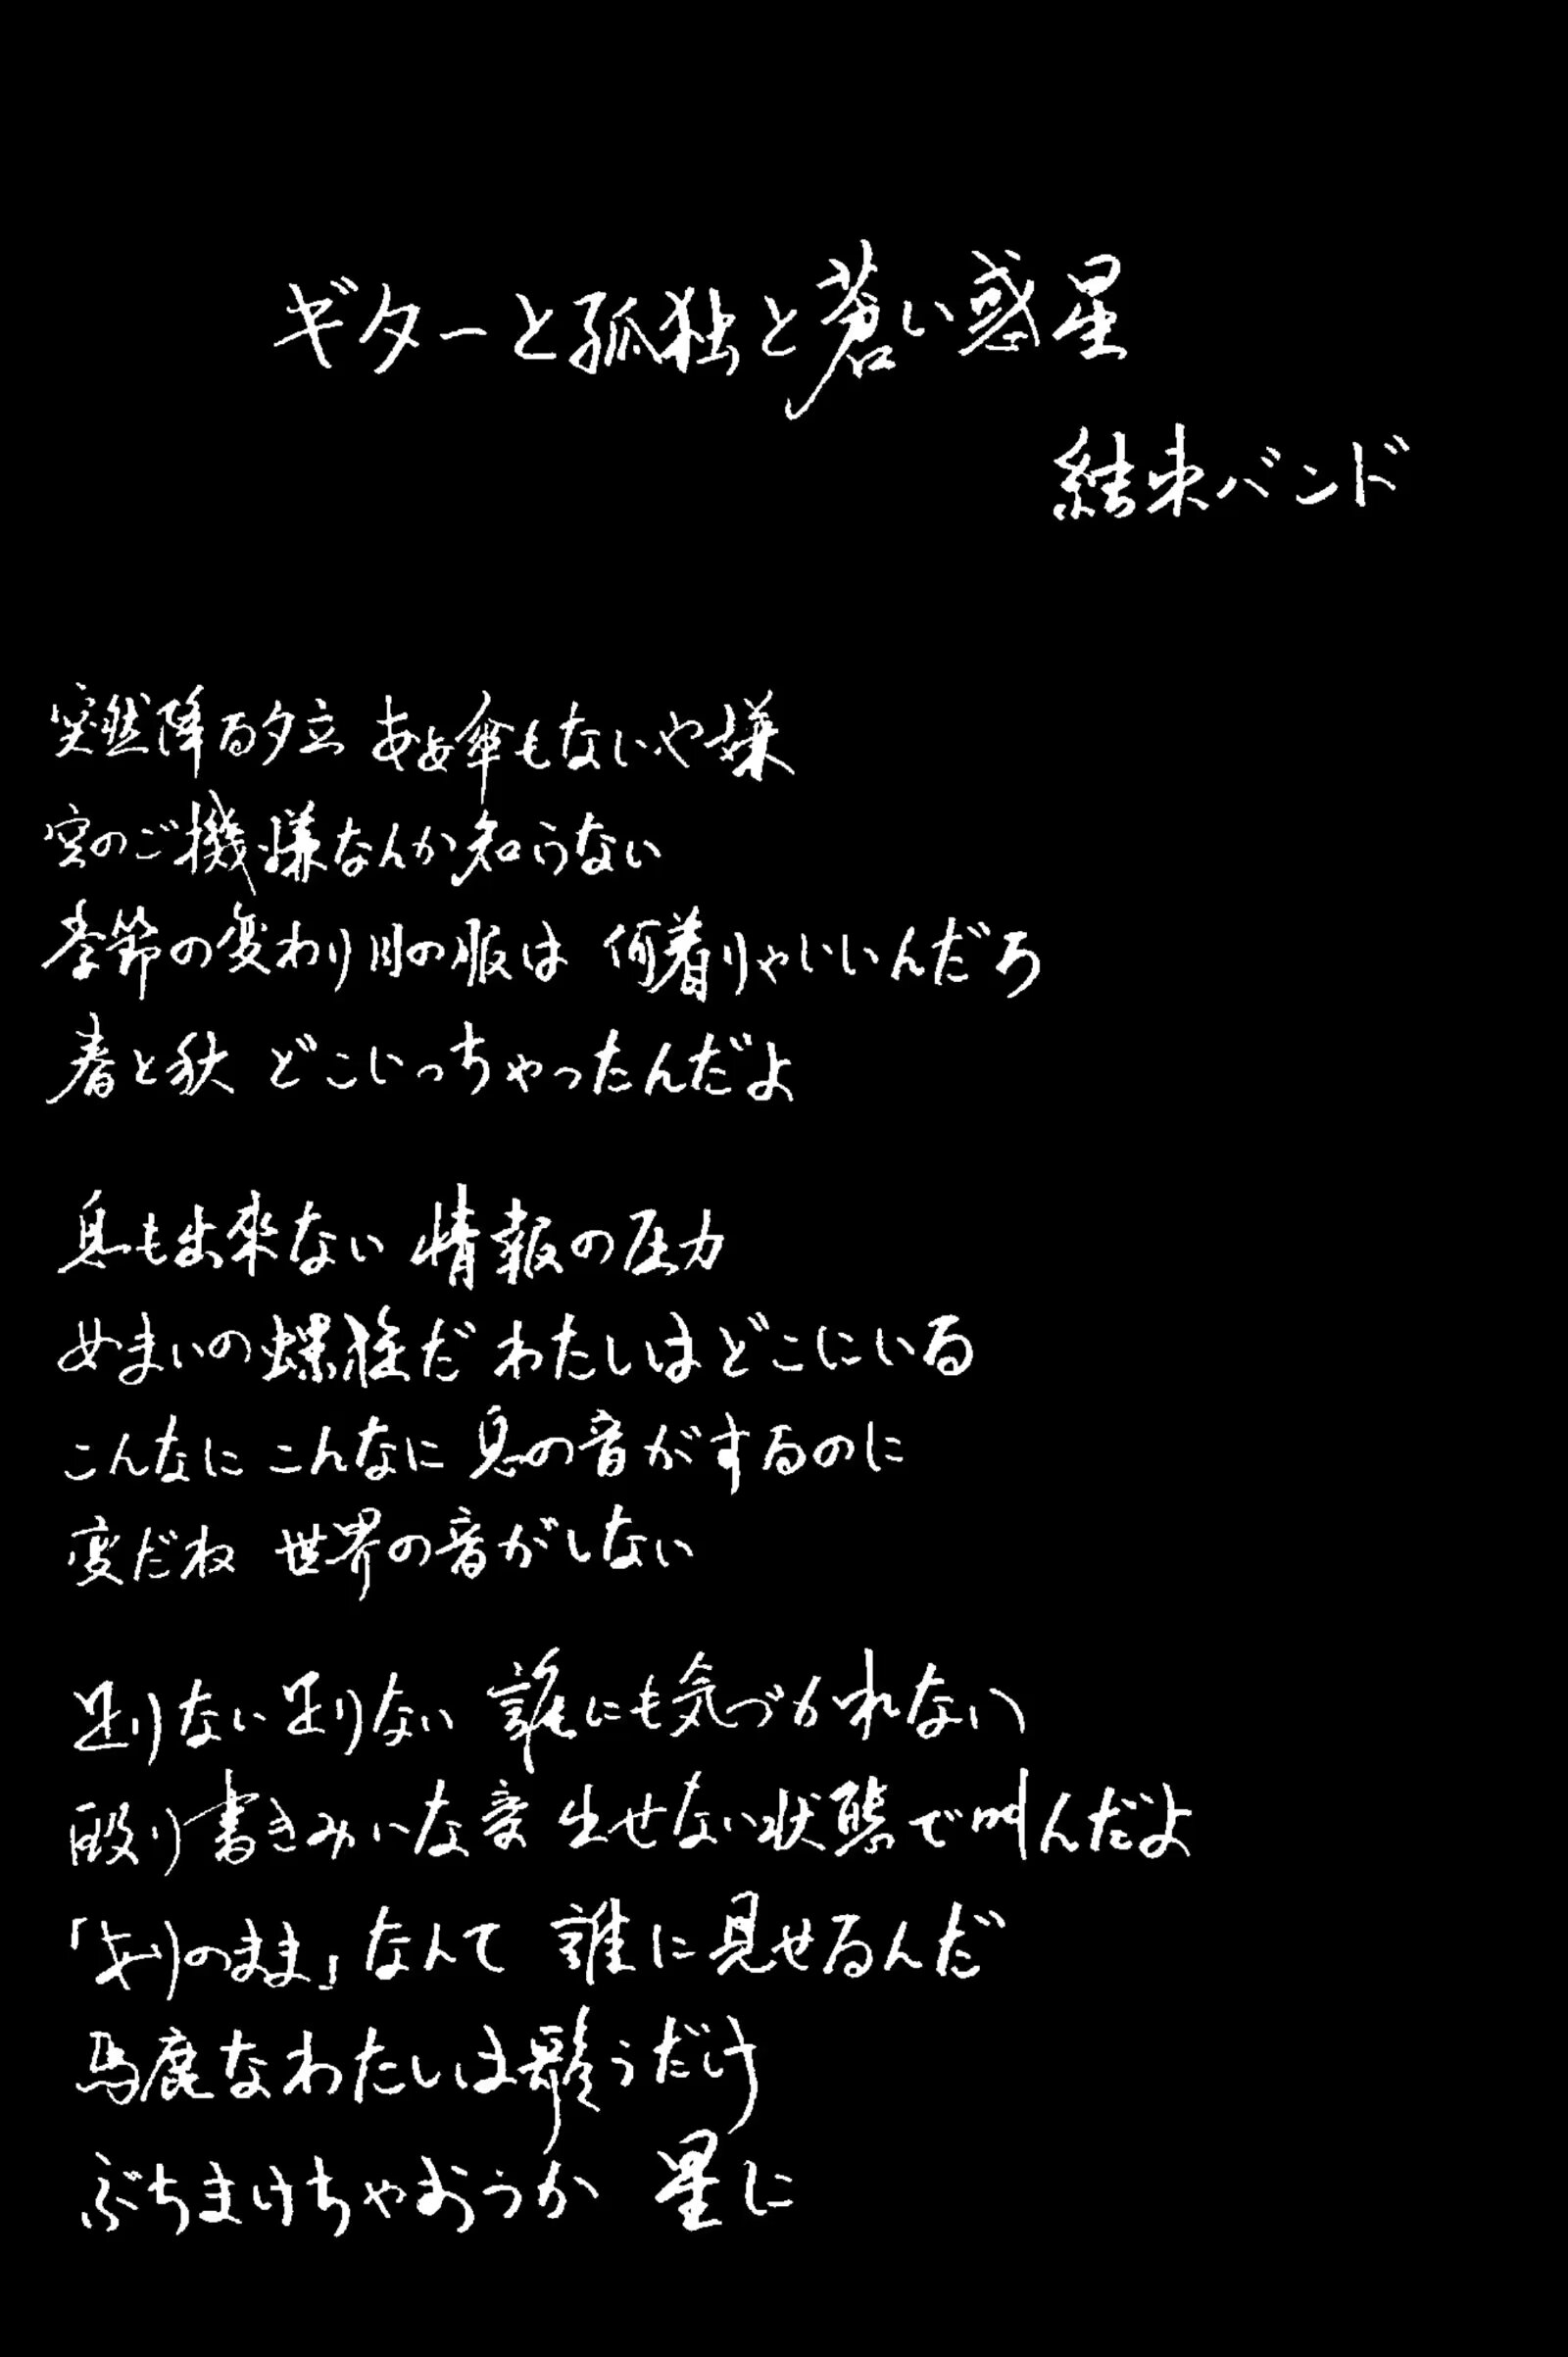 ギターと孤独と蒼い惑星
結束バンド
突然降る夕立 あぁ傘もないや嫌
空のご機嫌なんか知らない
季節の変わり目の服は 何着りゃいいんだろ
春と秋 どこいっちゃったんだよ
息も出来ない 情報の圧力
めまいの螺旋だ わたしはどこにいる
こんなに こんなに 息の音がするのに
変だね 世界の音がしない
足りない 足りない 誰にも気づかれない
殴り書きみたいな音 出せない状態で叫んだよ
「ありのまま」なんて 誰に見せるんだ
馬鹿なわたしは歌うだけ
ぶちまけちゃおうか 星に